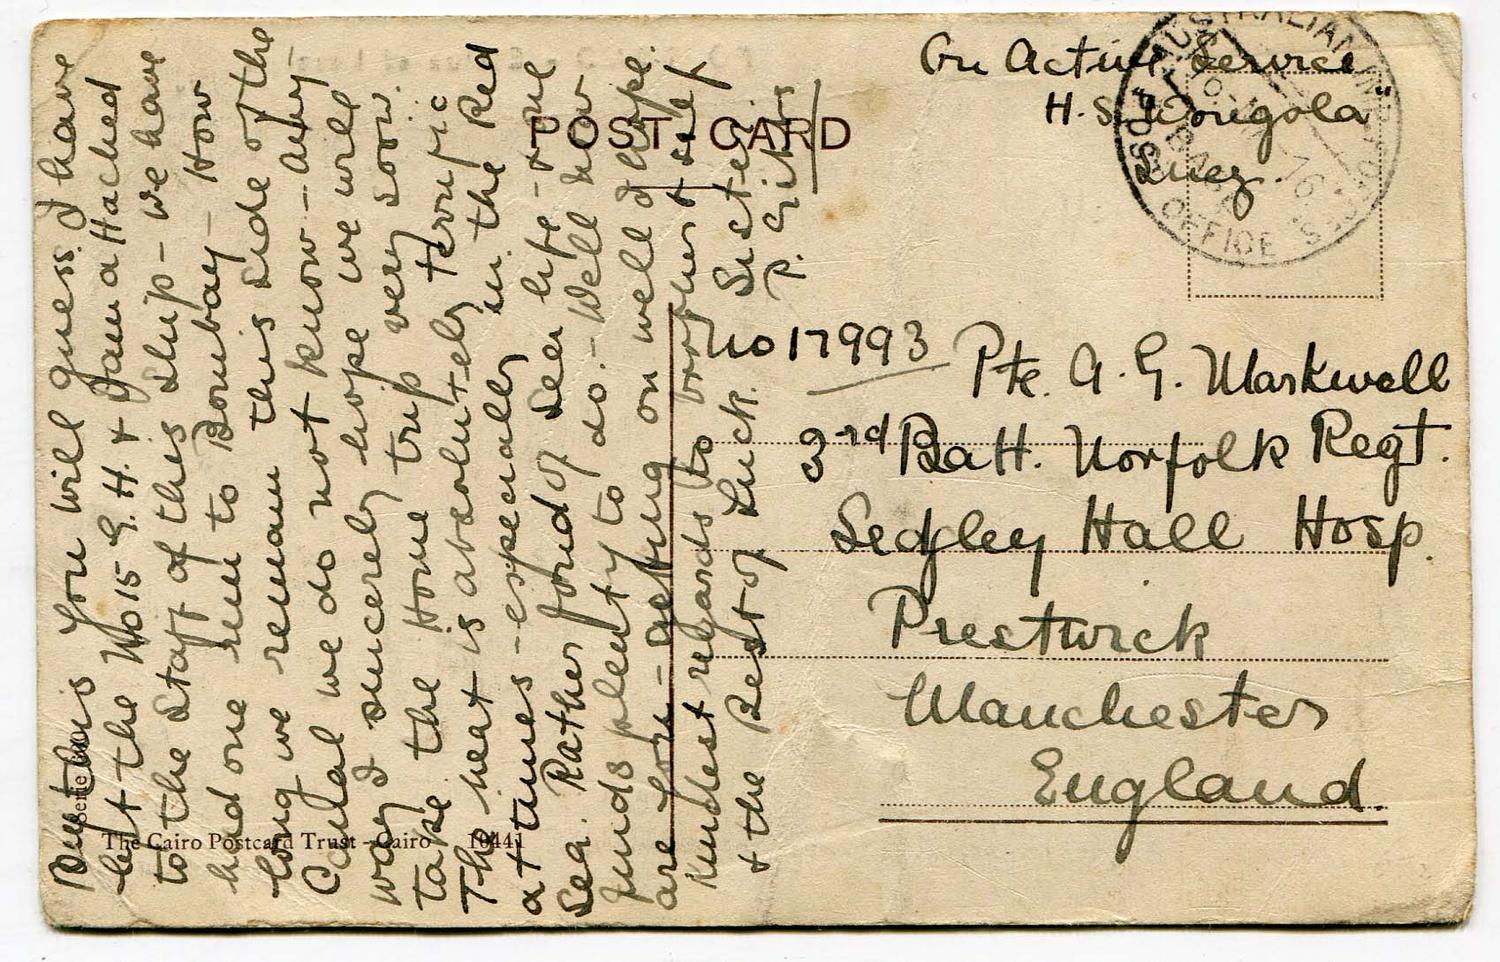 POST CARD
On Active Service
H.S. Dongola
Suez.
AUSTRALIAN
POST OFFICE
16
By this you will guess I have
left the No 15 G. H. & am attached
to the Staff of this ship - we have
had one run to Bombay - How
long we remain this side of the
Canal we do not know - any
way I sincerely hope we will
take the Home trip very soon.
The heat is absolutely terrific
at times - especially in the Red
Sea. Rather fond of Sea life - one
finds plenty to do. - Well how
are you - getting on well I hope.
Kindest regards to brother & self
& the Best of Luck. Sister
P. Gibbs
No 17993 Pte. A. G. Markwell
3rd Batt. Norfolk Regt.
Sedgley Hall Hosp.
Prestwick
Manchester
England.
Serie
The Cairo Postcard Trust - Cairo 10441